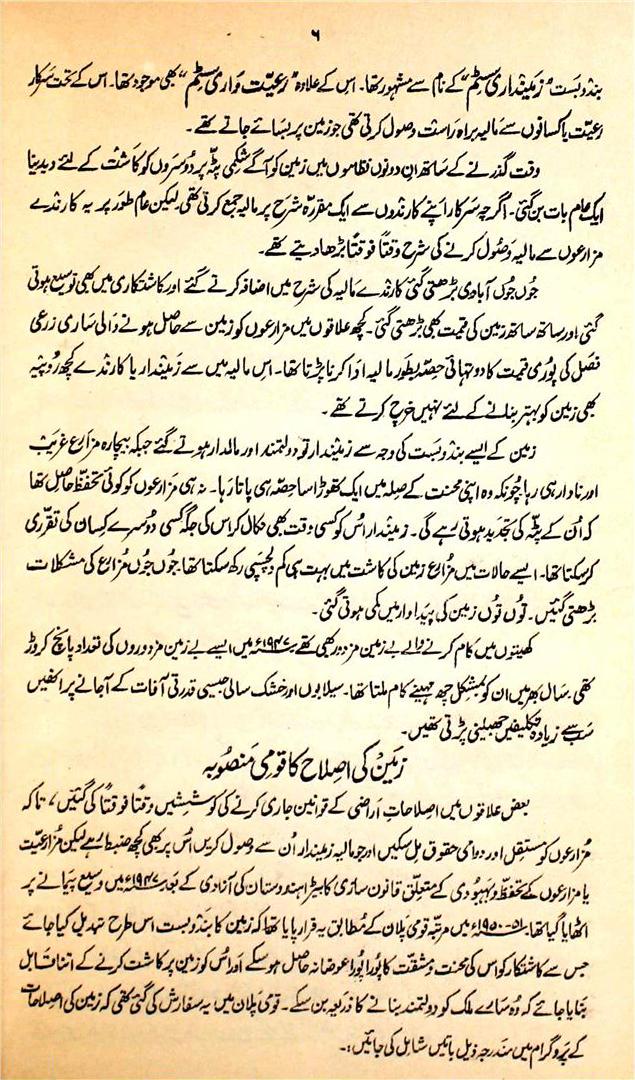 ۶
بندوبست "زمینداری سسٹم" کے نام سے مشہور تھا۔ اس کے علاوہ "رعیّت واری سٹم" بھی موجود تھا۔ اس کے تحت سرکار
رعیّت یا کسانوں سے مالیہ براہ راست وصول کرتی تھی جو زمین پر بسائے جاتے تھے۔
وقت گذرنے کے ساتھ ان دونوں نظاموں میں زمین کو آگے شکمی پٹہ پر دوسروں کو کاشت کے لئے دیدینا
ایک عام بات بن گئی۔ اگرچہ سرکار اپنے کارندوں سے ایک مقررہ شرح پر مالیہ جمع کرتی تھی لیکن عام طور پر یہ کارندے
مزارعوں سے مالیہ وصول کرنے کی شرح وقتاً فوقتاً بڑھا دیتے تھے۔
جوں جوں آبادی بڑھتی گئی کارندے مالیہ کی شرح میں اضافہ کرتے گئے اور کاشتکاری میں بھی توسیع ہوتی
گئی اور ساتھ ساتھ زمین کی قیمت بھی بڑھتی گئی۔ کچھ علاقوں میں مزارعوں کو زمین سے حاصل ہونے والی ساری زرعی
فصل کی پوری قیمت کا دو تہائی حصّہ بطور مالیہ ادا کرنا پڑتا تھا۔ اس مالیہ میں سے زمیندار یا کارندے کچھ روپیہ
بھی زمین کو بہتر بنانے کے لئے نہیں خرچ کرتے تھے۔
زمین کے ایسے بندوبست کی وجہ سے زمیندار تو دولتمند اور مالدار ہوتے گئے جبکہ بیچارہ مزارع غریب
اور نادار ہی رہا چونکہ وہ اپنی محنت کے صلہ میں ایک تھوڑا سا حصّہ ہی پاتا رہا۔ نہ ہی مزارعوں کو کوئی تحفّظ حاصل تھا
کہ اُن کے پٹّہ کی تجدید ہوتی رہے گی۔ زمیندار اُس کو کسی وقت بھی نکال کر اس کی جگہ کسی دوسرے کسان کی تقرری
کر سکتا تھا۔ ایسے حالات میں مزارع زمین کی کاشت میں بہت ہی کم دلچسپی رکھ سکتا تھا۔ جوں جوں مزارع کی مشکلات
بڑھتی گئیں۔ توں توں زمین کی پیداوار میں کمی ہوتی گئی۔
کھیتوں میں کام کرنے والے بے زمین مزدور بھی تھے۔ ۱۹۴۷ء میں ایسے بے زمین مزدوروں کی تعداد پانچ کروڑ
تھی۔ سال بھر میں ان کو بمشکل چھ مہینے کام ملتا تھا۔ سیلابوں اور خشک سالی جیسی قدرتی آفات کے آجانے پر انھیں
سب سے زیادہ تکلیفیں جھیلنی پڑتی تھیں۔
زمین کی اصلاح کا قومی منصوبہ
بعض علاقوں میں اصلاحاتِ اراضی کے قوانین جاری کرنے کی کوششیں وقتاً فوقتاً کی گئیں، تاکہ
مزارعوں کو مستقل اور دوامی حقوق مل سکیں اور جو مالیہ زمیندار اُن سے وصول کریں اُس پر بھی کچھ ضبط رہے لیکن مزارعیت
یا مزارعوں کے تحفظ و بہبودی کے متعلق قانون سازی کا بیڑا ہندوستان کی آزادی کے بعد ۱۹۴۷ء میں وسیع پیمانے پر
اٹھایا گیا تھا۔ ۵۱-۱۹۵۰ء میں مرتبہ قومی پلان کے مطابق یہ قرار پایا تھا کہ زمین کا بندوبست اس طرح تبدیل کیا جائے
جس سے کاشتکار کو اس کی محنت و مشقت کا پورا پورا عوضانہ حاصل ہو سکے اور اُس کو زمین پر کاشت کرنے کے اتنا قابل
بنایا جائے کہ وہ سارے ملک کو دولتمند بنانے کا ذریعہ بن سکے۔ قومی پلان میں یہ سفارش کی گئی تھی کہ زمین کی اصلاحات
کے پروگرام میں مندرجہ ذیل باتیں شامل کی جائیں:۔